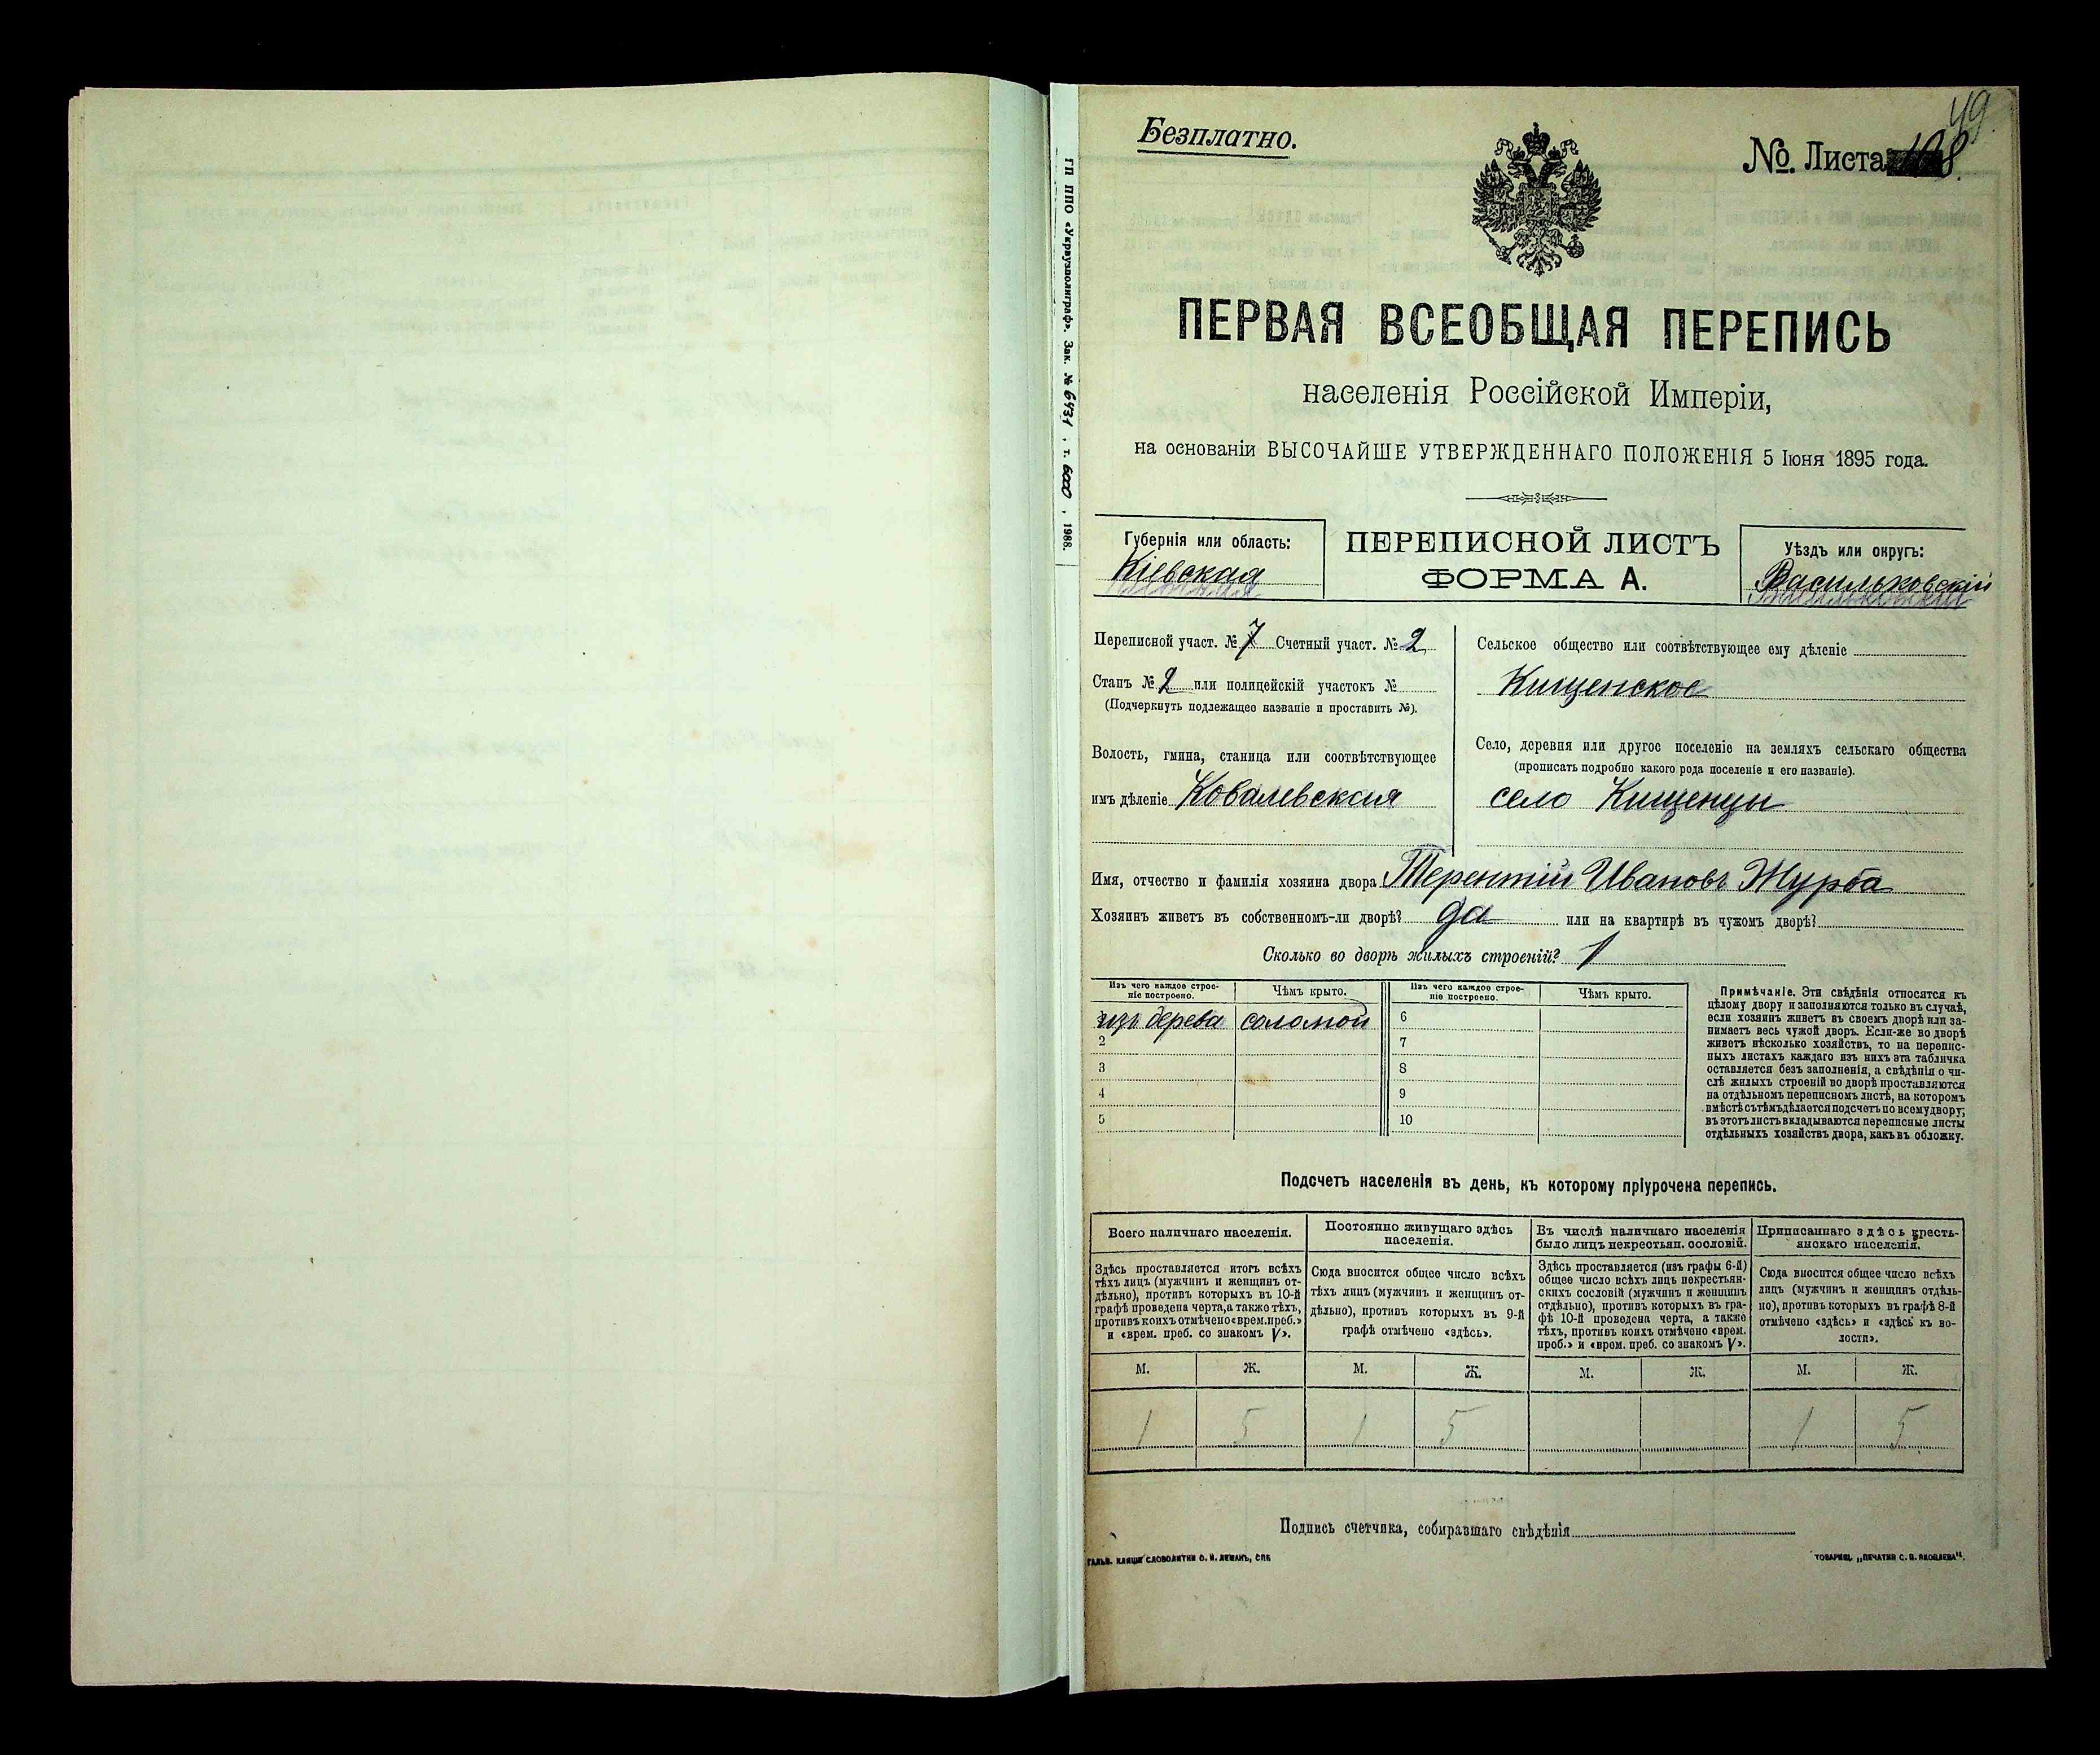 49.
Безплатно.
№. Листа 108.
ПЕРВАЯ ВСЕОБЩАЯ ПЕРЕПИСЬ
населенія Россійской Имперіи,
на основаніи ВЫСОЧАЙШЕ УТВЕРЖДЕННАГО ПОЛОЖЕНІЯ 5 Іюня 1895 года.
Губернія или область:
Кіевская
ПЕРЕПИСНОЙ ЛИСТЪ
ФОРМА А.
Уѣздъ или округъ:
Васильковскій
Переписной участ. № 7 Счетный участ. № 2
Станъ № 2 или полицейскій участокъ №
(Подчеркнуть подлежащее названіе и проставить №).
Волость, гмина, станица или соотвѣтствующее
имъ дѣленіе Ковалевская
Сельское общество или соотвѣтствующее ему дѣленіе
Кищенское
Село, деревня или другое поселеніе на земляхъ сельскаго общества
(прописать подробно какого рода поселеніе и его названіе).
село Кищенцы
Имя, отчество и фамилія хозяина двора Терентій Ивановъ Журба
Хозяинъ живетъ въ собственномъ-ли дворѣ? да или на квартирѣ въ чужомъ дворѣ?
Сколько во дворѣ жилыхъ строеній? 1
Изъ чего каждое строе-
ніе построено.
Чѣмъ крыто.
Изъ чего каждое строе-
ніе построено.
Чѣмъ крыто.
изъ дерева соломой 6
2 7
3 8
4 9
5 10
Примѣчаніе. Эти свѣдѣнія относятся къ
цѣлому двору и заполняются только въ случаѣ,
если хозяинъ живетъ въ своемъ дворѣ или за-
нимаетъ весь чужой дворъ. Если-же во дворѣ
живетъ нѣсколько хозяйствъ, то на перепис-
ныхъ листахъ каждаго изъ нихъ эта табличка
оставляется безъ заполненія, а свѣдѣнія о чи-
слѣ жилыхъ строеній во дворѣ проставляются
на отдѣльномъ переписномъ листѣ, на которомъ
вмѣстѣ съ тѣмъ дѣлается подсчетъ по всему двору;
въ этотъ листъ вкладываются переписные листы
отдѣльныхъ хозяйствъ двора, какъ въ обложку.
Подсчетъ населенія въ день, къ которому пріурочена перепись.
Всего наличнаго населенія.
Здѣсь проставляется итогъ всѣхъ
тѣхъ лицъ (мужчинъ и женщинъ от-
дѣльно), противъ которыхъ въ 10-й
графѣ проведена черта, а также тѣхъ,
противъ коихъ отмѣчено «врем. преб.»
и «врем. преб. со знакомъ V».
Постоянно живущаго здѣсь
населенія.
Сюда вносится общее число всѣхъ
тѣхъ лицъ (мужчинъ и женщинъ от-
дѣльно), противъ которыхъ въ 9-й
графѣ отмѣчено «здѣсь».
Въ числѣ наличнаго населенія
было лицъ некрестьян. сословій.
Здѣсь проставляется (изъ графы 6-й)
общее число всѣхъ лицъ некрестьян-
скихъ сословій (мужчинъ и женщинъ
отдѣльно), противъ которыхъ въ гра-
фѣ 10-й проведена черта, а также
тѣхъ, противъ коихъ отмѣчено «врем.
преб.» и «врем. преб. со знакомъ V».
Приписаннаго здѣсь кресть-
янскаго населенія.
Сюда вносится общее число всѣхъ
лицъ (мужчинъ и женщинъ отдѣль-
но), противъ которыхъ въ графѣ 8-й
отмѣчено «здѣсь» и «здѣсь къ во-
лости».
М. Ж. М. Ж. М. Ж. М. Ж.
1 5 1 5 1 5
Подпись счетчика, собиравшаго свѣдѣнія
ГАЛЬВ. КЛИШЕ СЛОВОЛИТНИ О. И. ЛЕМАНЪ, СПБ
ТОВАРИЩ. „ПЕЧАТНЯ С. П. ЯКОВЛЕВА".
ГП ППО «Укрвузполиграф». Зак. № 6431, т. 6000, 1988.